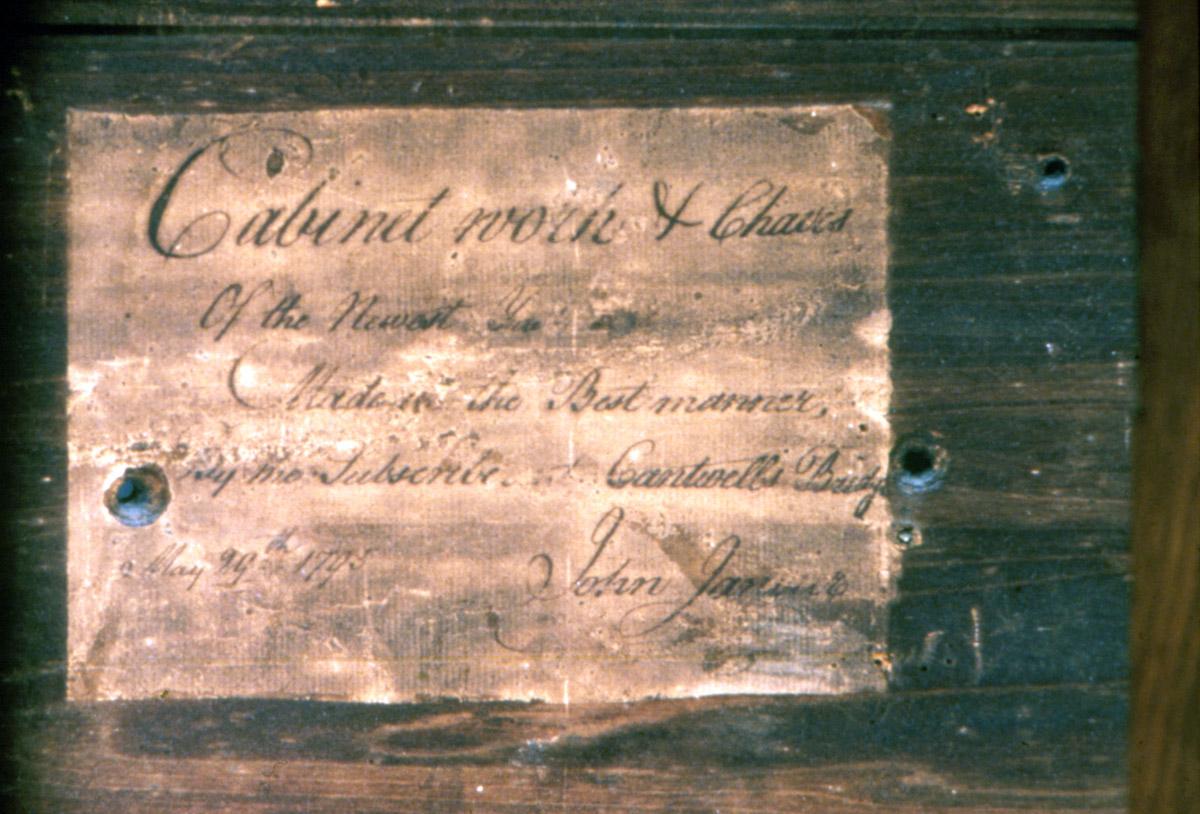 Cabinet work & Chaires
Of the Newest
Made in the Best manner,
By me Subscribe Cantwells Bridg
May 29th 1795
John Janvier